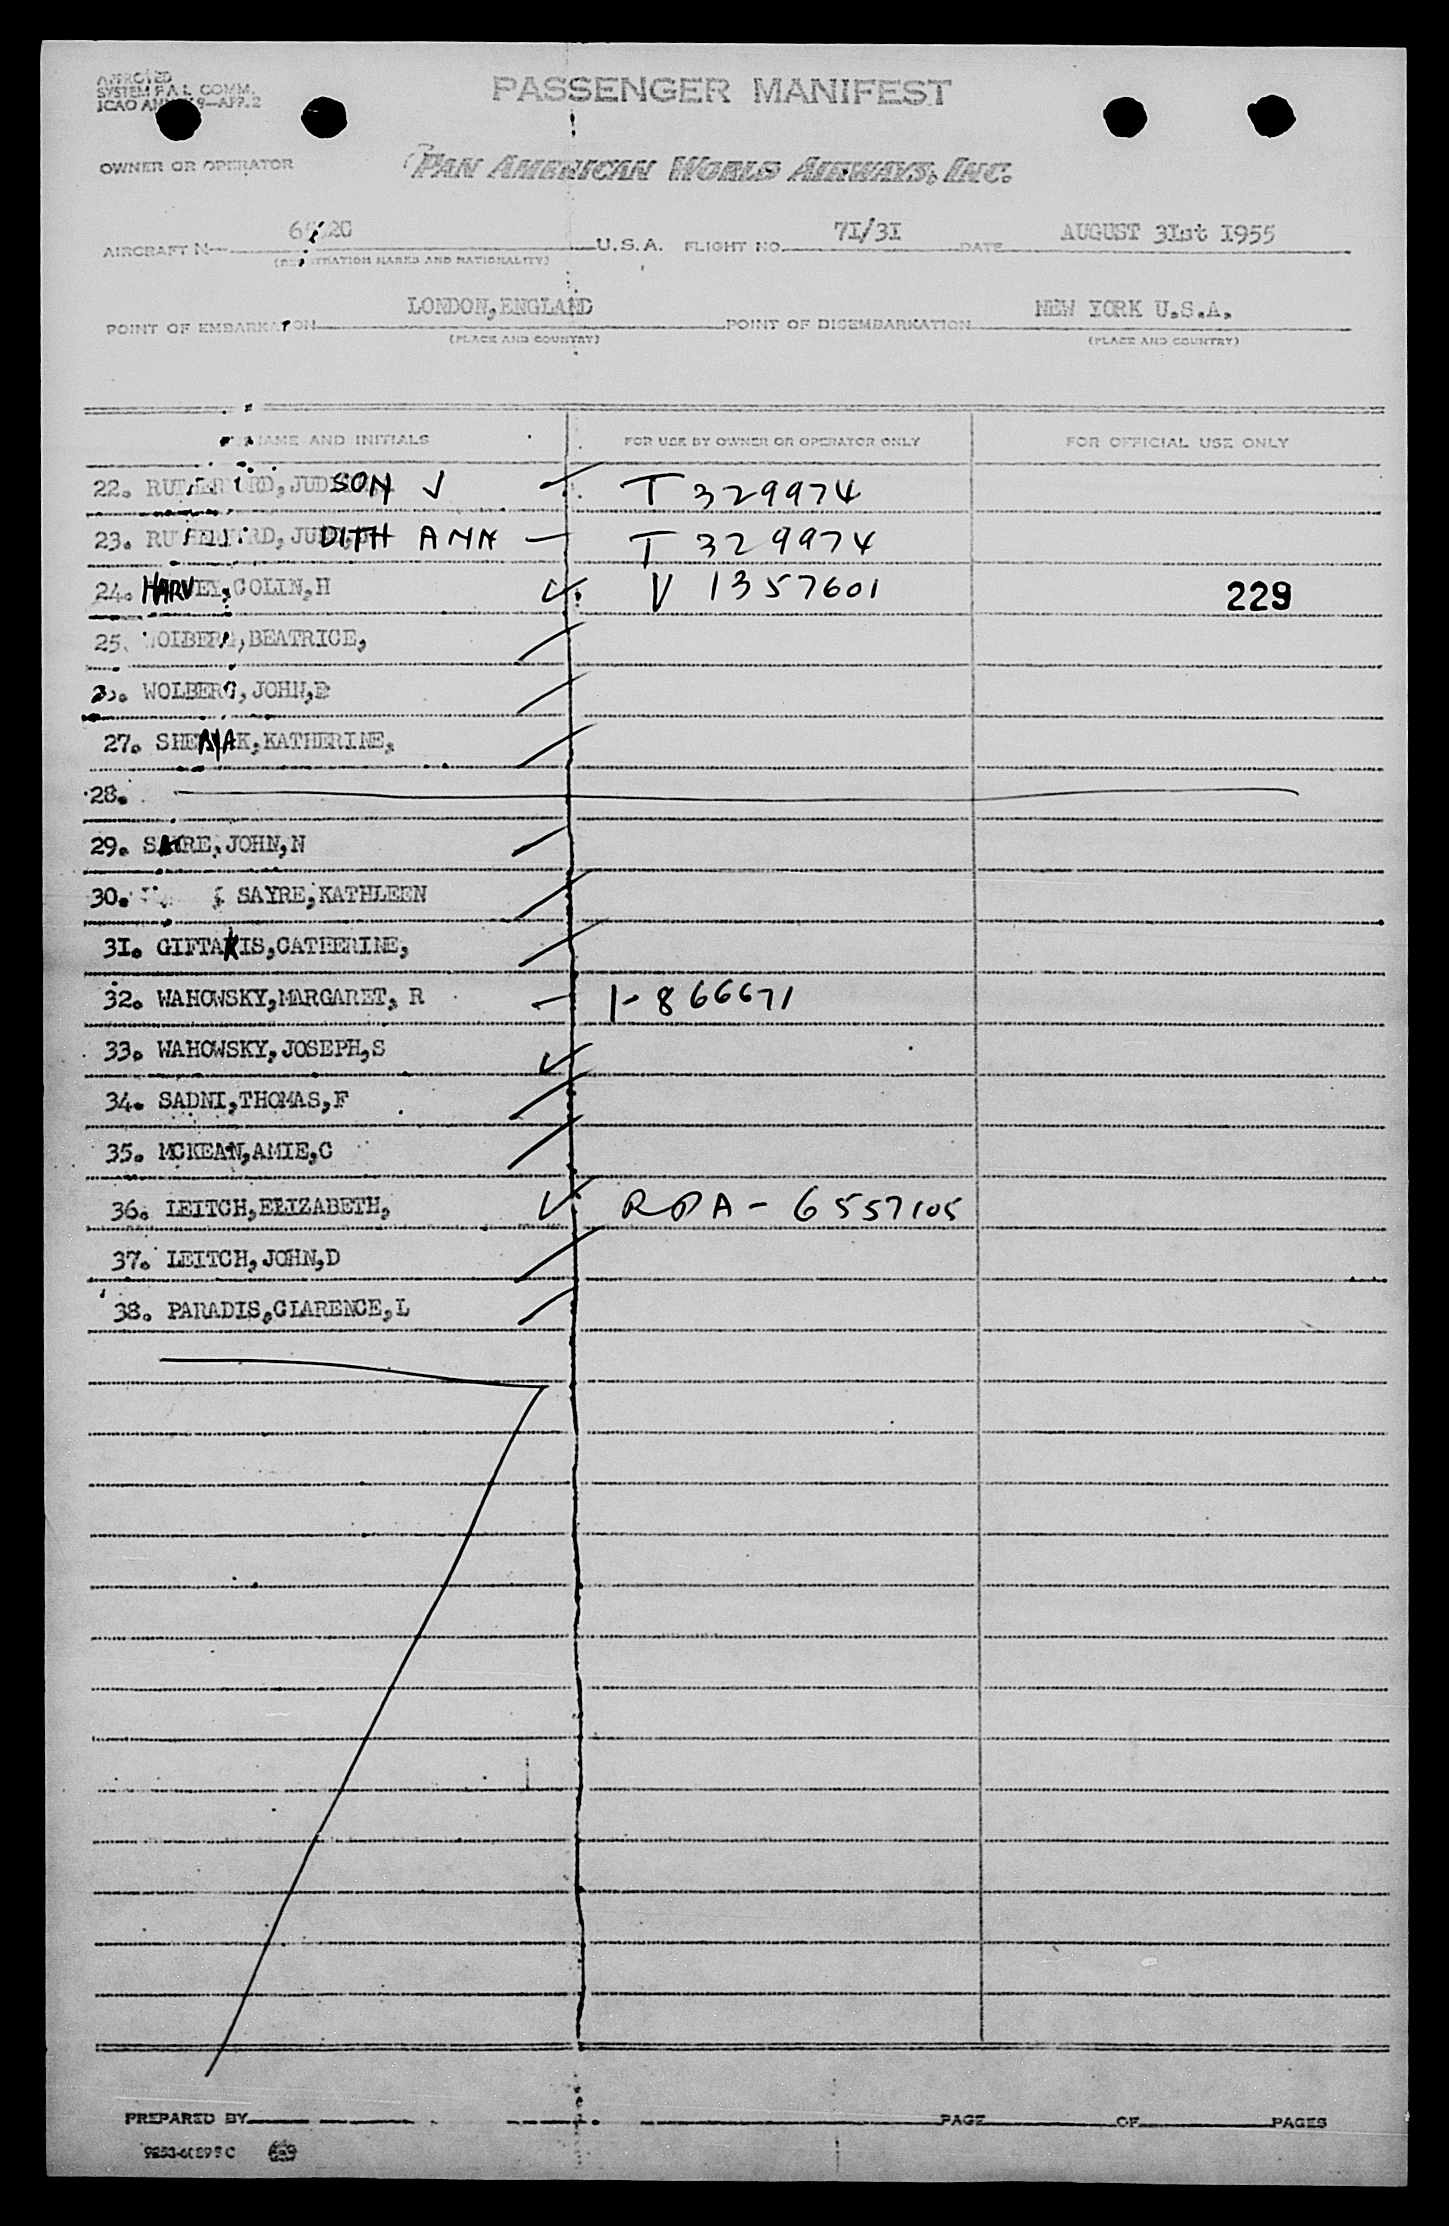 APPROVED
SYSTEM F.A.L. COMM.
ICAO 9—APP. 2
PASSENGER MANIFEST
OWNER OR OPERATOR PAN AMERICAN WORLD AIRWAYS, INC.
AIRCRAFT N— U.S.A. FLIGHT NO. 71/31 DATE AUGUST 31st 1955
(REGISTRATION MARKS AND NATIONALITY)
POINT OF EMBARKATION LONDON,ENGLAND POINT OF DISEMBARKATION NEW YORK U.S.A.
(PLACE AND COUNTRY) (PLACE AND COUNTRY)
SURNAME AND INITIALS FOR USE BY OWNER OR OPERATOR ONLY FOR OFFICIAL USE ONLY
22. SON J T 329974
23. DITH ANN T 329974
24. HARVEY,COLIN,H V 1357601 229
25. WOLBERG,BEATRICE,
WOLBERG,JOHN,
27. KATHERINE,
28.
29. SAYRE,JOHN,N
30. SAYRE,KATHLEEN
31. GIFTAKIS,CATHERINE,
32. WAHOWSKY,MARGARET, R 1-866671
33. WAHOWSKY,JOSEPH,S
34. SADNI,THOMAS,F
35. MCKEAN,AMIE,C
36. LEITCH,ELIZABETH, 6557105
37. LEITCH,JOHN,D
38. PARADIS,CLARENCE,L
PREPARED BY PAGE OF PAGES